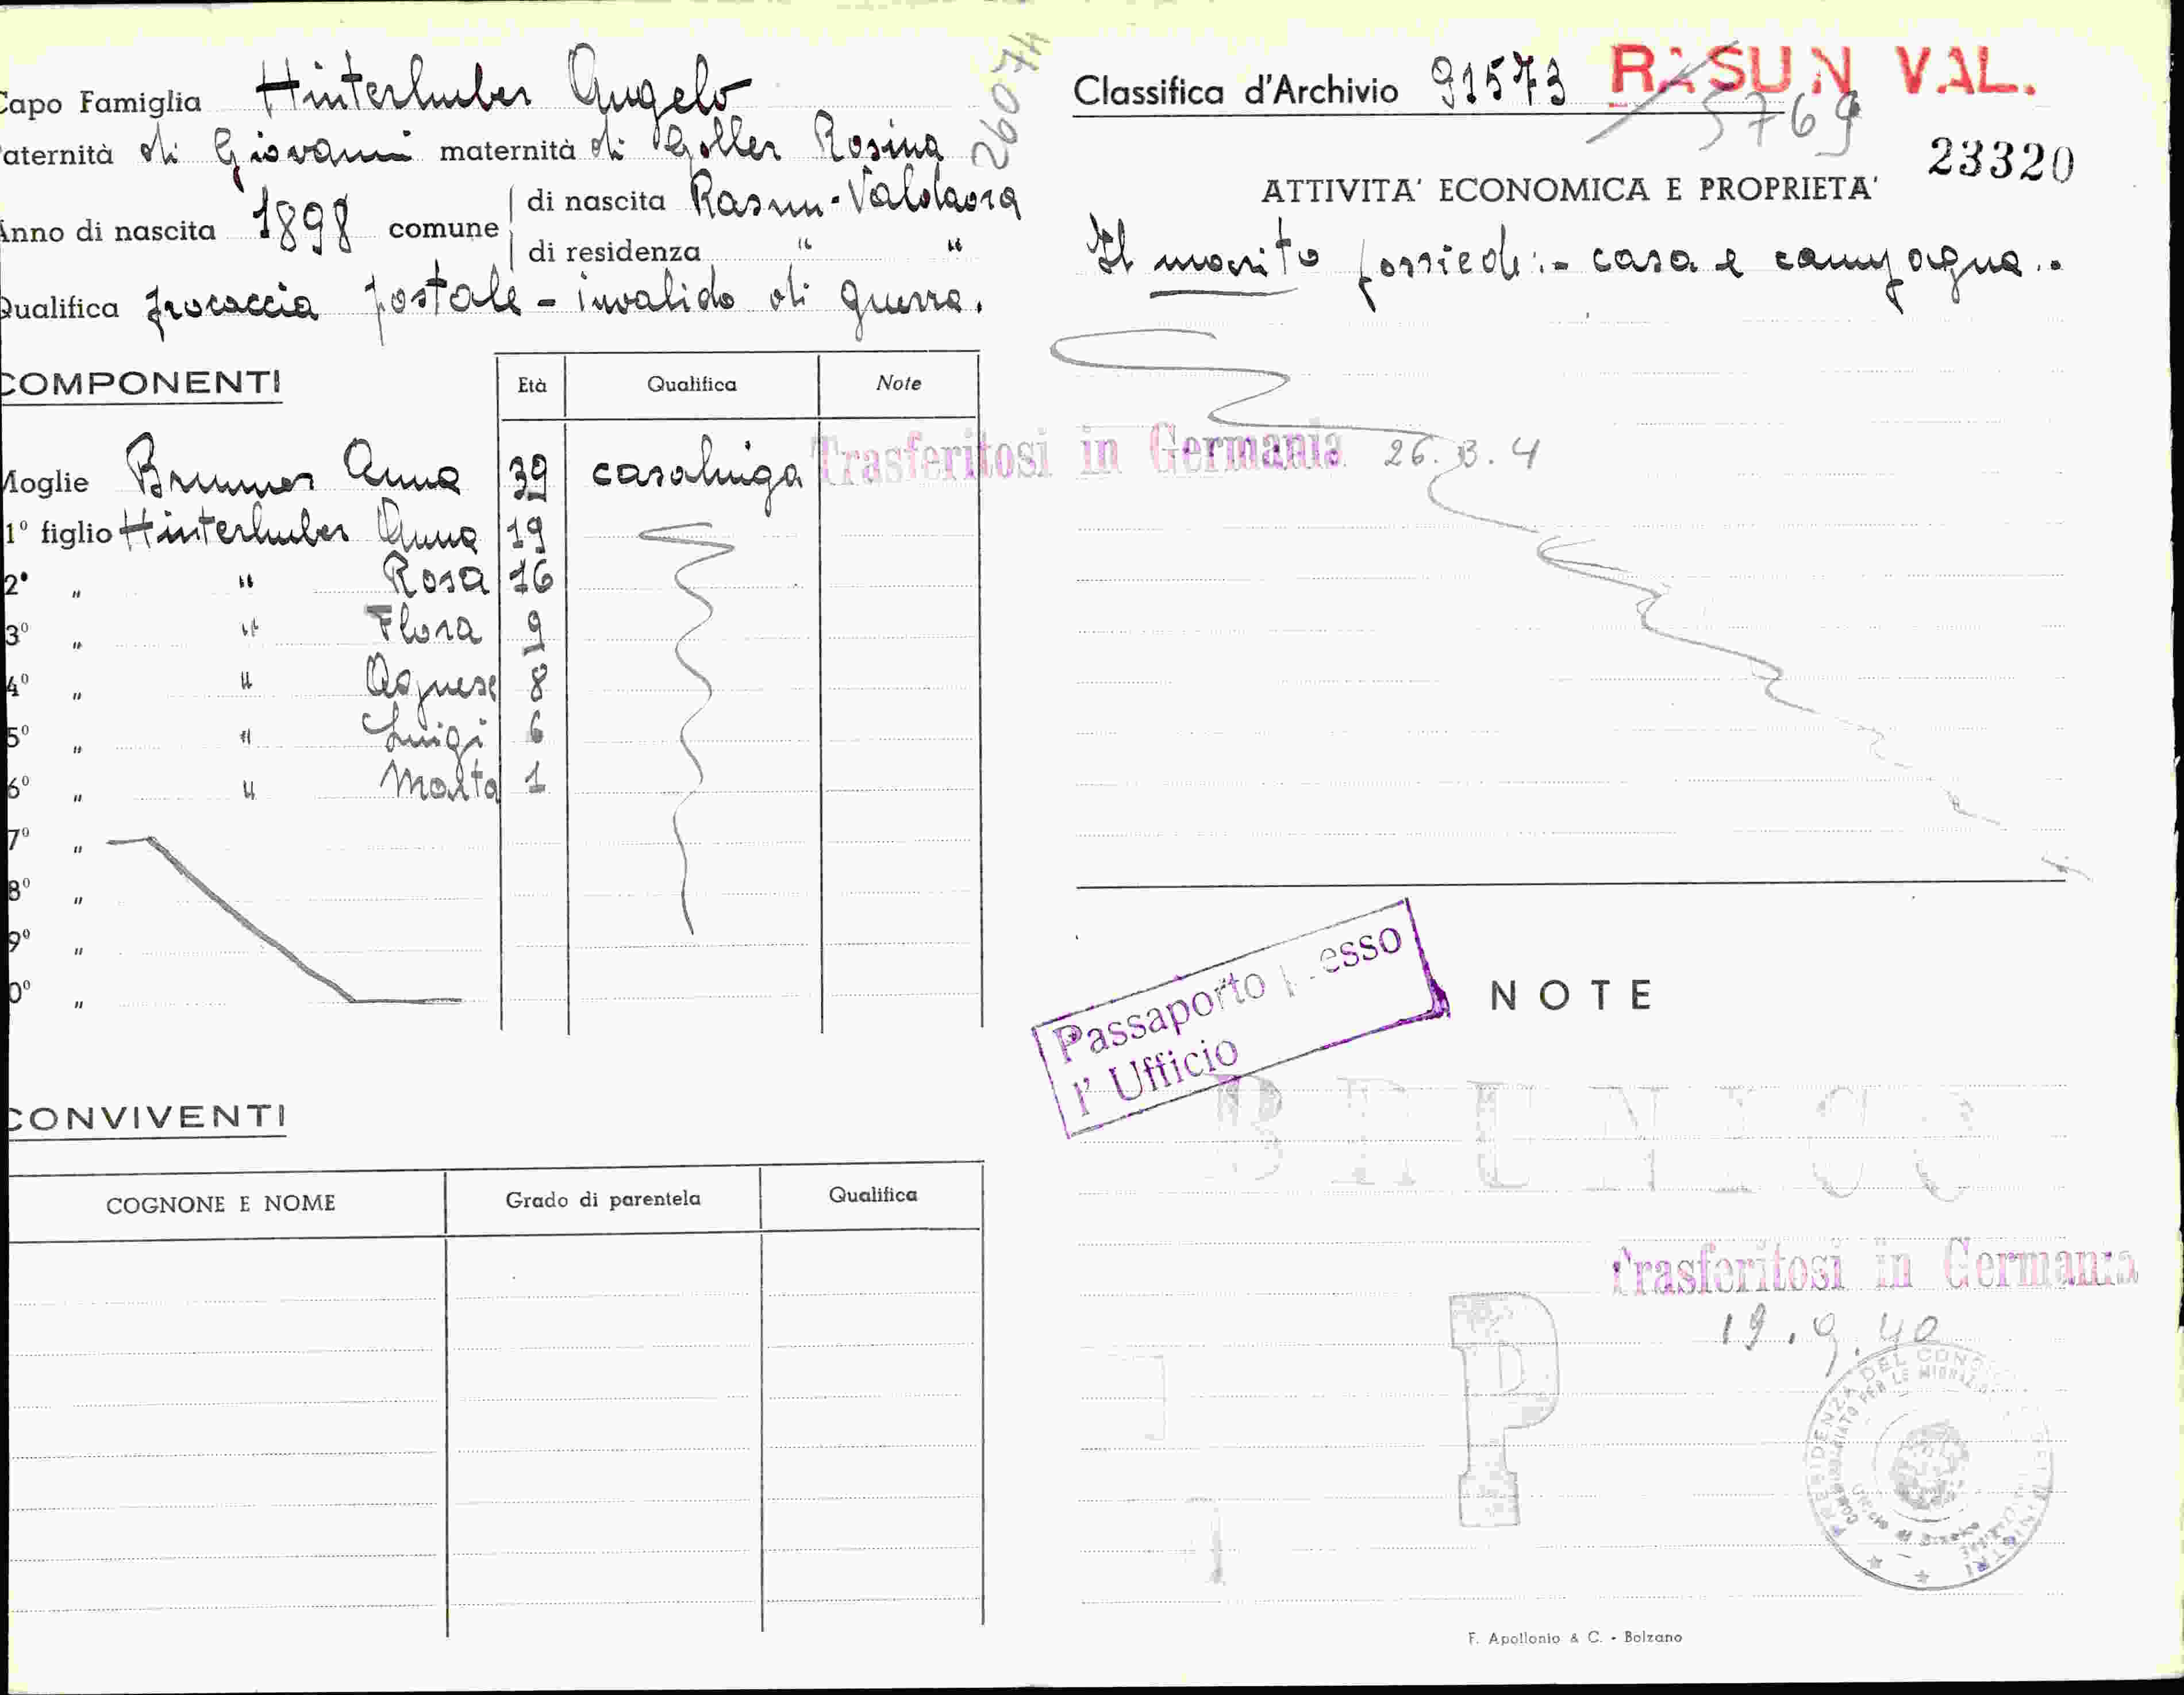 Capo Famiglia Hinterhuber Angelo
Paternità di Giovanni maternità di Goller Rosina
26074
Anno di nascita 1898 comune di nascita Rasun-Valdaora
di residenza " "
Qualifica procaccia postale - invalido di guerra.
COMPONENTI Età Qualifica Note
Moglie Brunner Anna 39 casalinga
1° figlio Hinterhuber Anna 19
2° " " Rosa 16
3° " " Flora 9
4° " " Agnese 8
5° " " Luigi 6
6° " " Marta 1
7° "
8° "
9° "
0° "
CONVIVENTI
COGNONE E NOME Grado di parentela Qualifica
Classifica d'Archivio 91573 RASUN VAL.
5769
23320
ATTIVITA' ECONOMICA E PROPRIETA'
Il marito possiede:- casa e campagna..
Trasferitosi in Germania 26.3.4
Passaporto presso
l' Ufficio
NOTE
BRUNICO
Trasferitosi in Germania
19.9.40
P
PRESIDENZA DEL CONS MINISTRI
F. Apollonio & C. - Bolzano